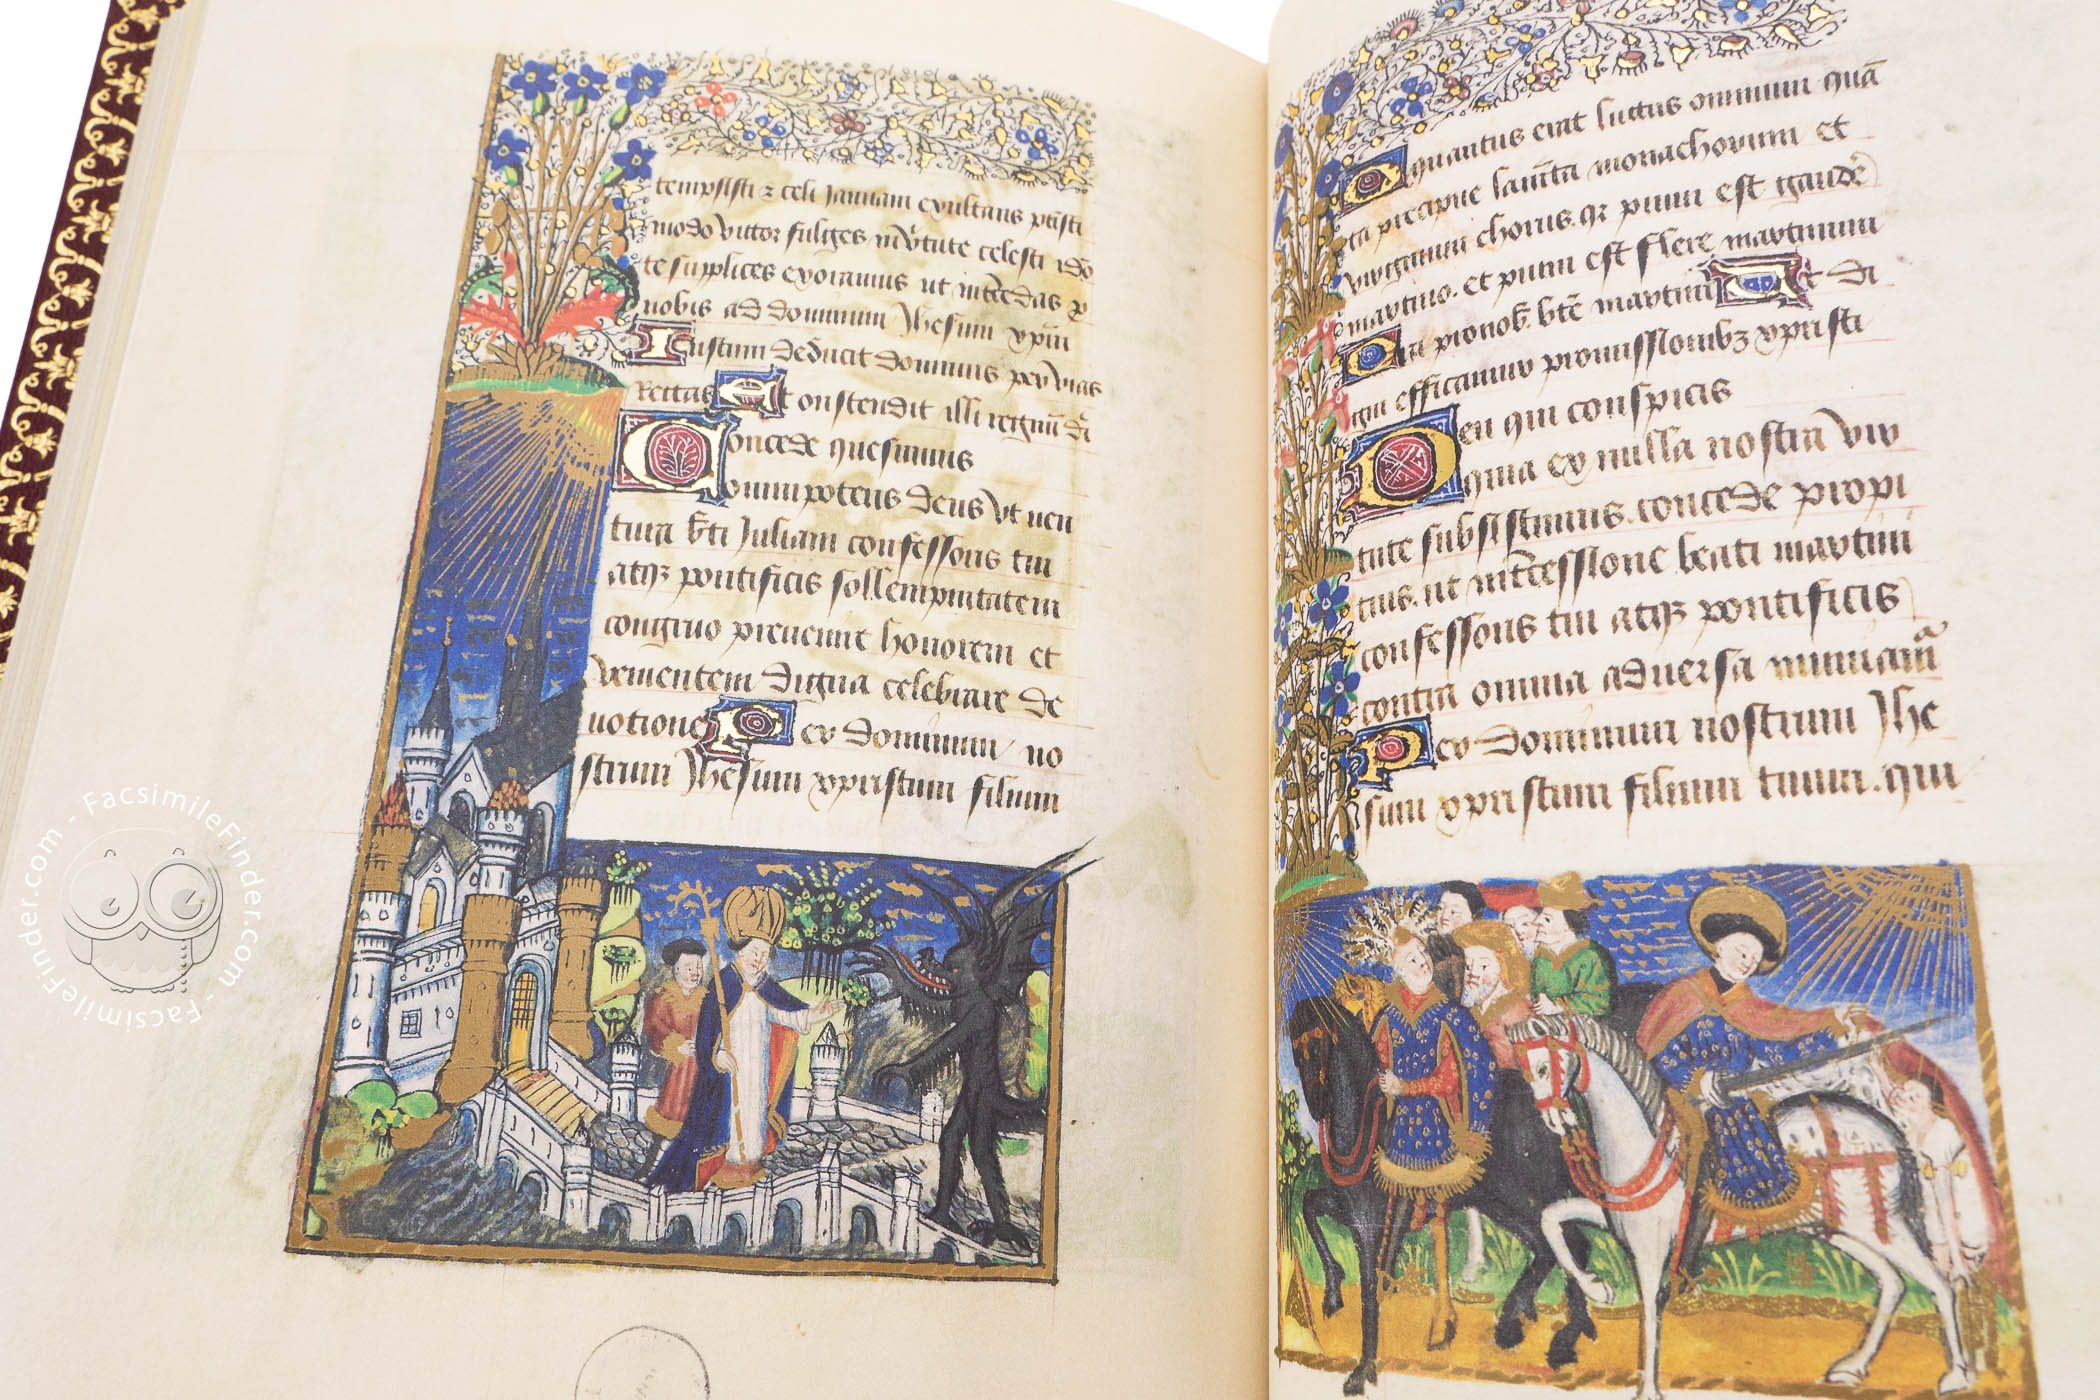 tempsisti ⁊ celi Januam exultans ptisti
modo victor fulges in virtute celesti ido
te supplices exoramus ut intercedas p
nobis ad dominum Jhesum xpm
Iustum deducit dominus per vias
Rectas Et onstendit illi regnum di
Concede quesumus
omnipotens deus vt uen
tura bti Juliani confessoris tui
atqz pontificis sollempnitatem
congruo preuenire honorem et
venientem digna celebrare de
uotione Per dominum no
strum Jhesum xpristum filium
quantus erat luctus omnium quā
ta precipue lamta monachorum et
virginum chorus. qz pium est gaudē
martino. et pium est flere martinum
Ora pronob. bte martine Ut di
gni efficamur promissionibz xpristi
Deu qui conspicis
quia ex nulla nostra vir
tute subsistimus. concede propi
tius. ut intercessione beati martini
confessoris tui atqz pontificis
contra omnia aduersa muniamr
Per dominum nostrum Jhe
sum xpristum filium tuum. qui
FacsimileFinder.com - FacsimileFinder.com - FacsimileFinder.com